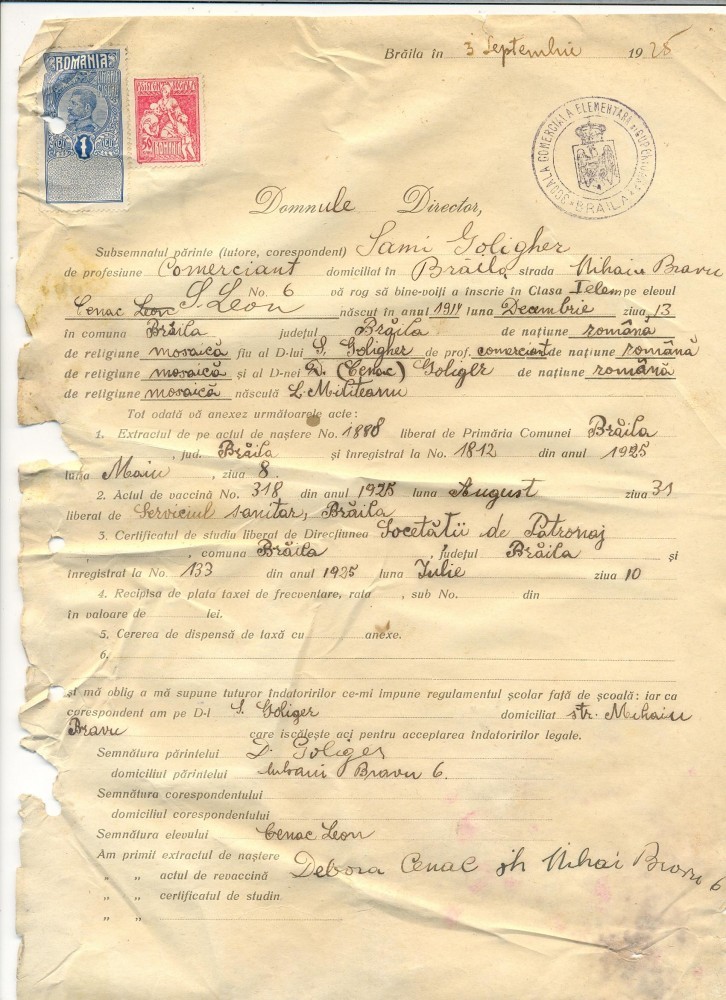 Brăila în 3 Septembrie 1925
ROMANIA
1
50
ȘCOALA COMERCIALĂ ELEMENTARĂ BRĂILA
Domnule Director,
Subsemnatul părinte (tutore, corespondent) Sami Goligher
de profesiune Comerciant domiciliat în Brăila strada Mihaiu Bravu
No. 6 vă rog să bine-voiți a înscrie în Clasa I elem pe elevul
Cenac Leon S. Leon născut în anul 1914 luna Decembrie ziua 13
în comuna Brăila județul Brăila de națiune română
de religiune mosaică fiu al D-lui S. Goligher de prof. comerciant de națiune română
de religiune mosaică și al D-nei D. (Cenac) Goliger de națiune română
de religiune mosaică născută L. Militeanu
Tot odată vă anexez următoarele acte:
1. Extractul de pe actul de naștere No. 1888 liberat de Primăria Comunei Brăila
, jud. Brăila și înregistrat la No. 1812 din anul 1925
luna Maiu , ziua 8.
2. Actul de vaccină No. 318 din anul 1925 luna August ziua 31
liberat de Serviciul sanitar, Brăila
3. Certificatul de studiu liberat de Direcțiunea Socetății de Patronaj
, comuna Brăila , județul Brăila și
înregistrat la No. 133 din anul 1925 luna Iulie ziua 10
4. Recipisa de plata taxei de frecventare, rata , sub No. din
în valoare de lei.
5. Cererea de dispensă de taxă cu anexe.
6.
și mă oblig a mă supune tuturor îndatoririlor ce-mi impune regulamentul școlar față de școală: iar ca
corespondent am pe D-l S. Goliger domiciliat str. Mihaiu
Bravu care iscălește aci pentru acceptarea îndatoririlor legale.
Semnătura părintelui D. Goliger
domiciliul părintelui Bravu 6.
Semnătura corespondentului
domiciliul corespondentului
Semnătura elevului Cenac Leon
Am primit extractul de naștere Debora Cenac Mihai Bravu 6
„ „ actul de revaccină
„ „ certificatul de studiu
„ „